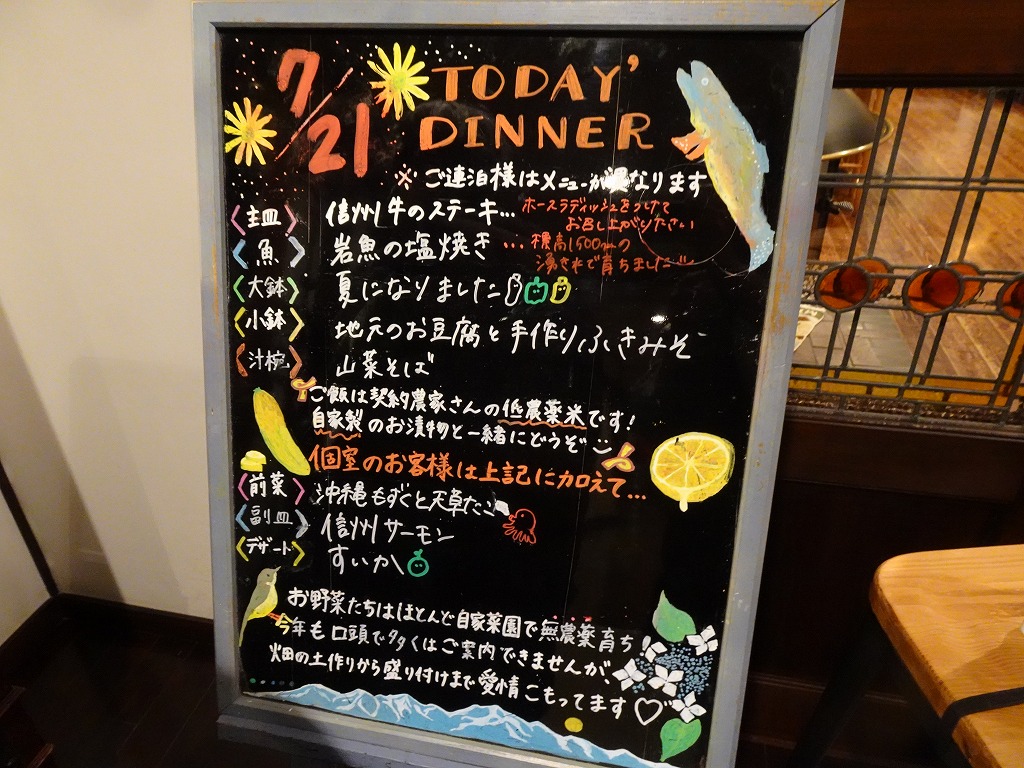 7/21 TODAY'
DINNER
※ご連泊様はメニューが異なります
〈主皿〉 信州牛のステーキ… ホースラディッシュをつけて
お召し上がりください
〈魚〉 岩魚の塩焼き … 標高1,500mの
湧き水で育ちました
〈大鉢〉 夏になりました
〈小鉢〉 地元のお豆腐と手作りふきみそ
〈汁椀〉 山菜そば
ご飯は契約農家さんの低農薬米です!
自家製のお漬物と一緒にどうぞ
個室のお客様は上記に加えて…
〈前菜〉 沖縄もずくと天草たこ
〈副皿〉 信州サーモン
〈デザート〉 すいか
お野菜たちはほとんど自家菜園で無農薬育ち
今年も口頭で多くはご案内できませんが、
畑の土作りから盛り付けまで愛情こもってます♡